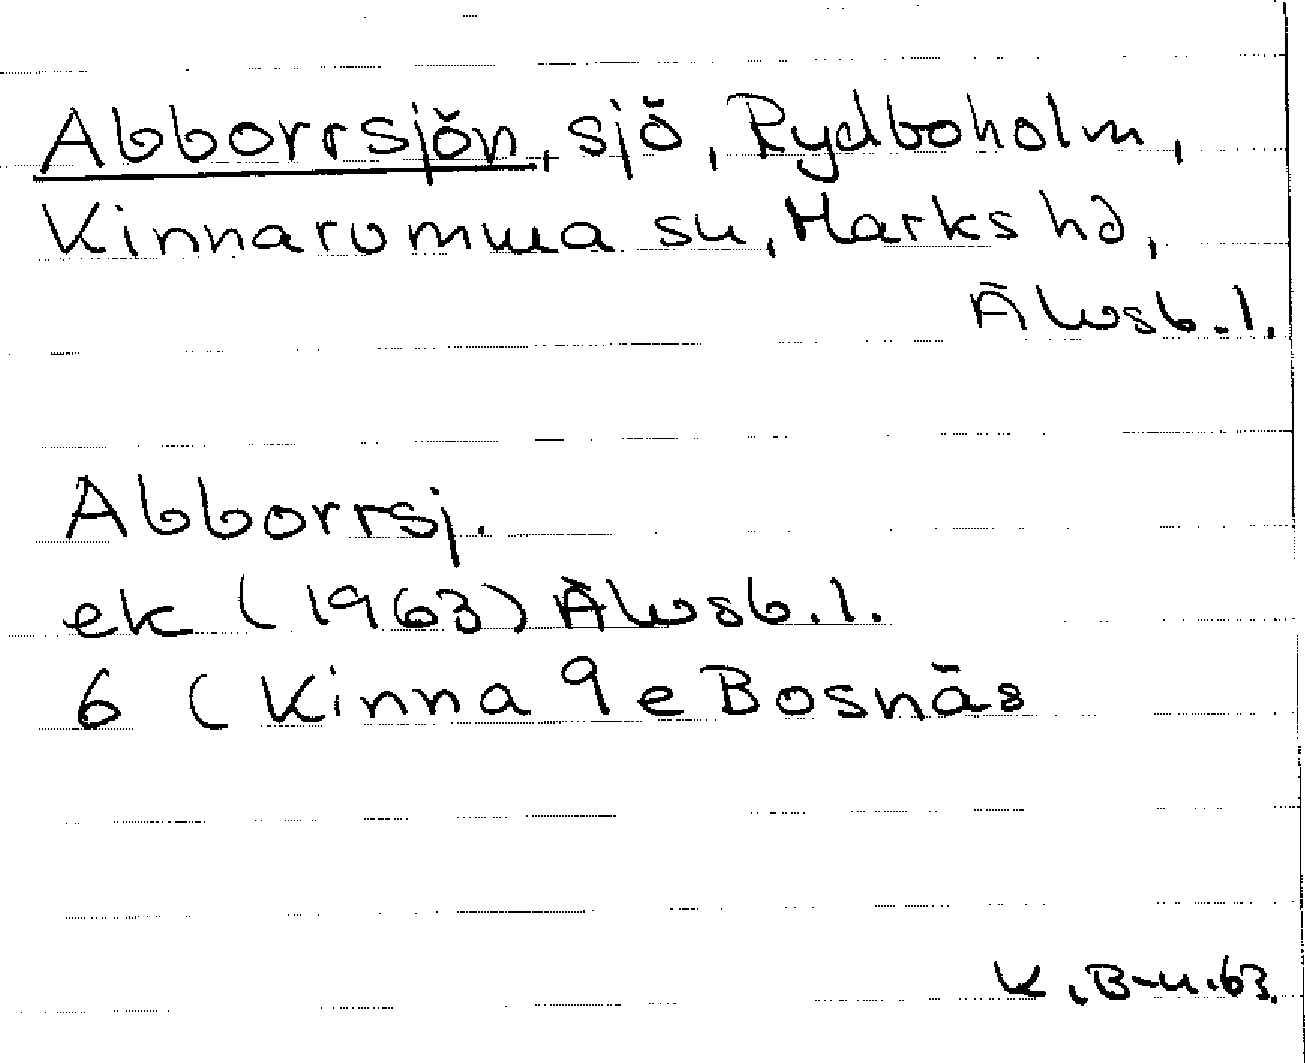 Abborrsjön, sjö, Rydboholm,
Kinnarumma sn, Marks hd,
Älvsb. l.
Abborrsj.
ek (1963) Älvsb. l.
6 (Kinna 9e Bosnäs
K. B-n. 63.